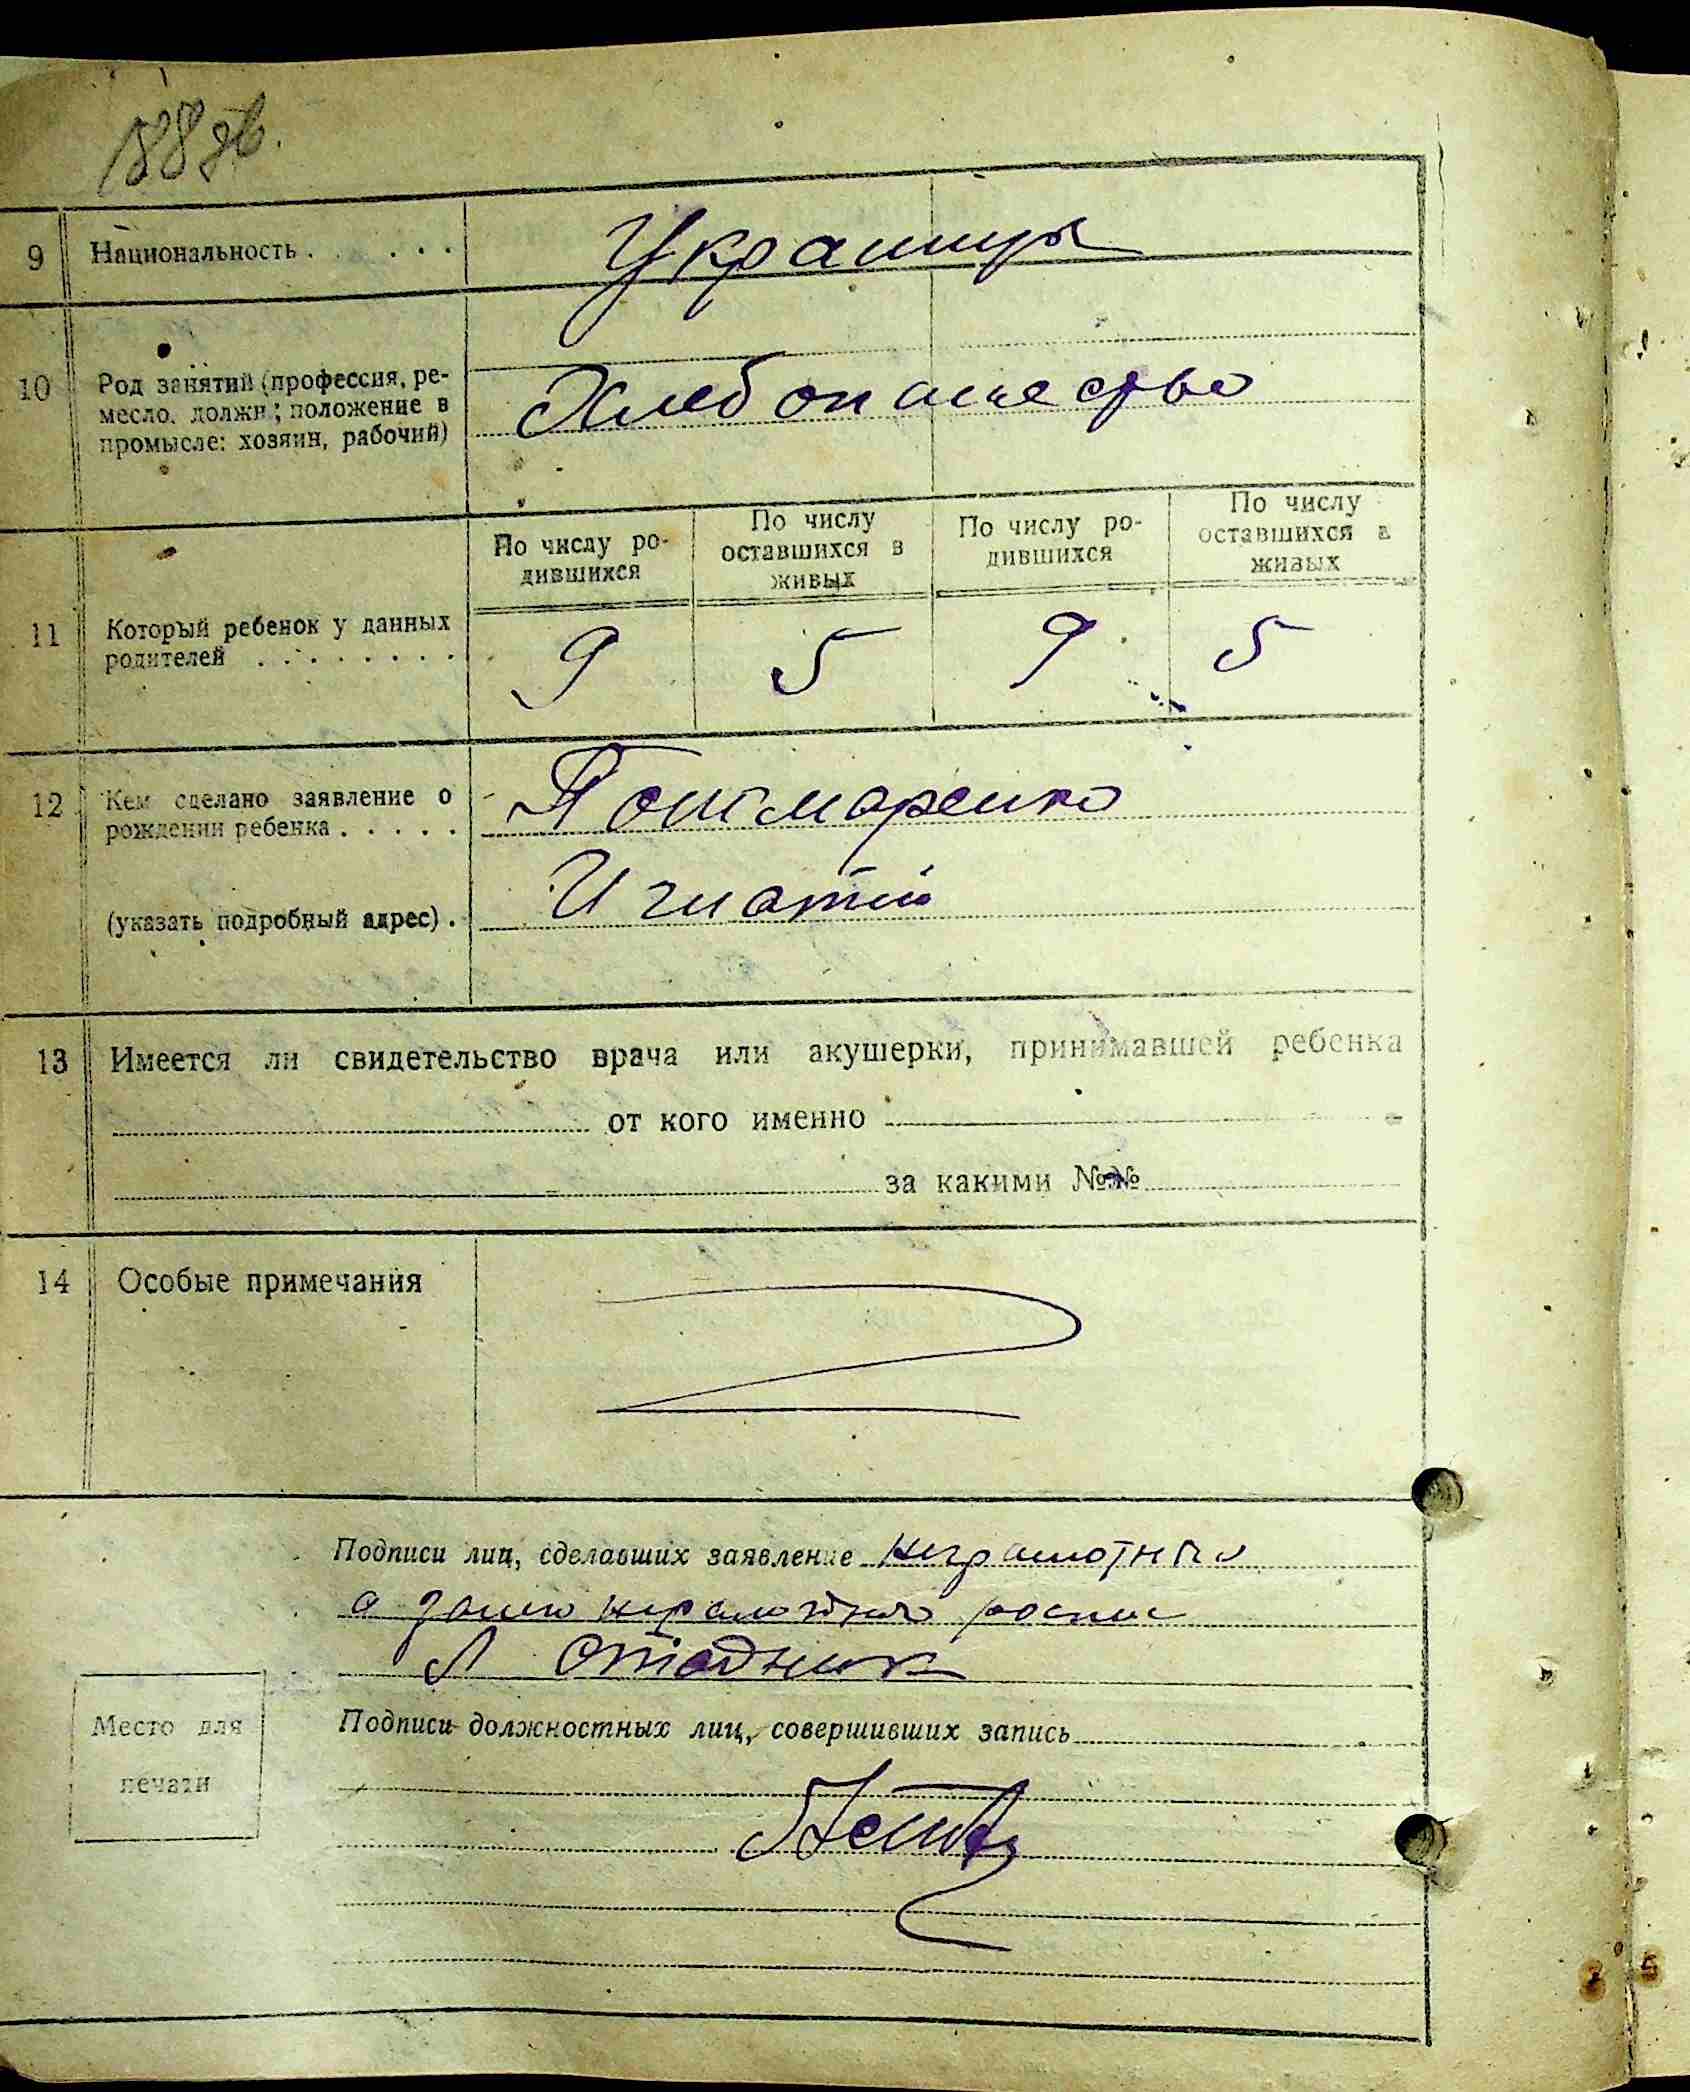 188 зв.
9 Национальность . . . . . . Украинцы
10 Род занятий (профессия, ре-
месло, должн; положение в
промысле: хозяин, рабочий)
Хлебопашество
11 Который ребенок у данных
родителей . . . . . . . .
По числу ро-
дившихся
По числу
оставшихся в
живых
По числу ро-
дившихся
По числу
оставшихся в
живых
9 5 9 5
12 Кем сделано заявление о
рождении ребенка . . . . .
Пономаренко
(указать подробный адрес) .
Игнатий
13 Имеется ли свидетельство врача или акушерки, принимавшей ребенка
от кого именно
за какими №№
14 Особые примечания
Подписи лиц, сделавших заявление неграмотный
а за него неграмотного роспис
Л Стадник
Место для
печати
Подписи должностных лиц, совершивших запись